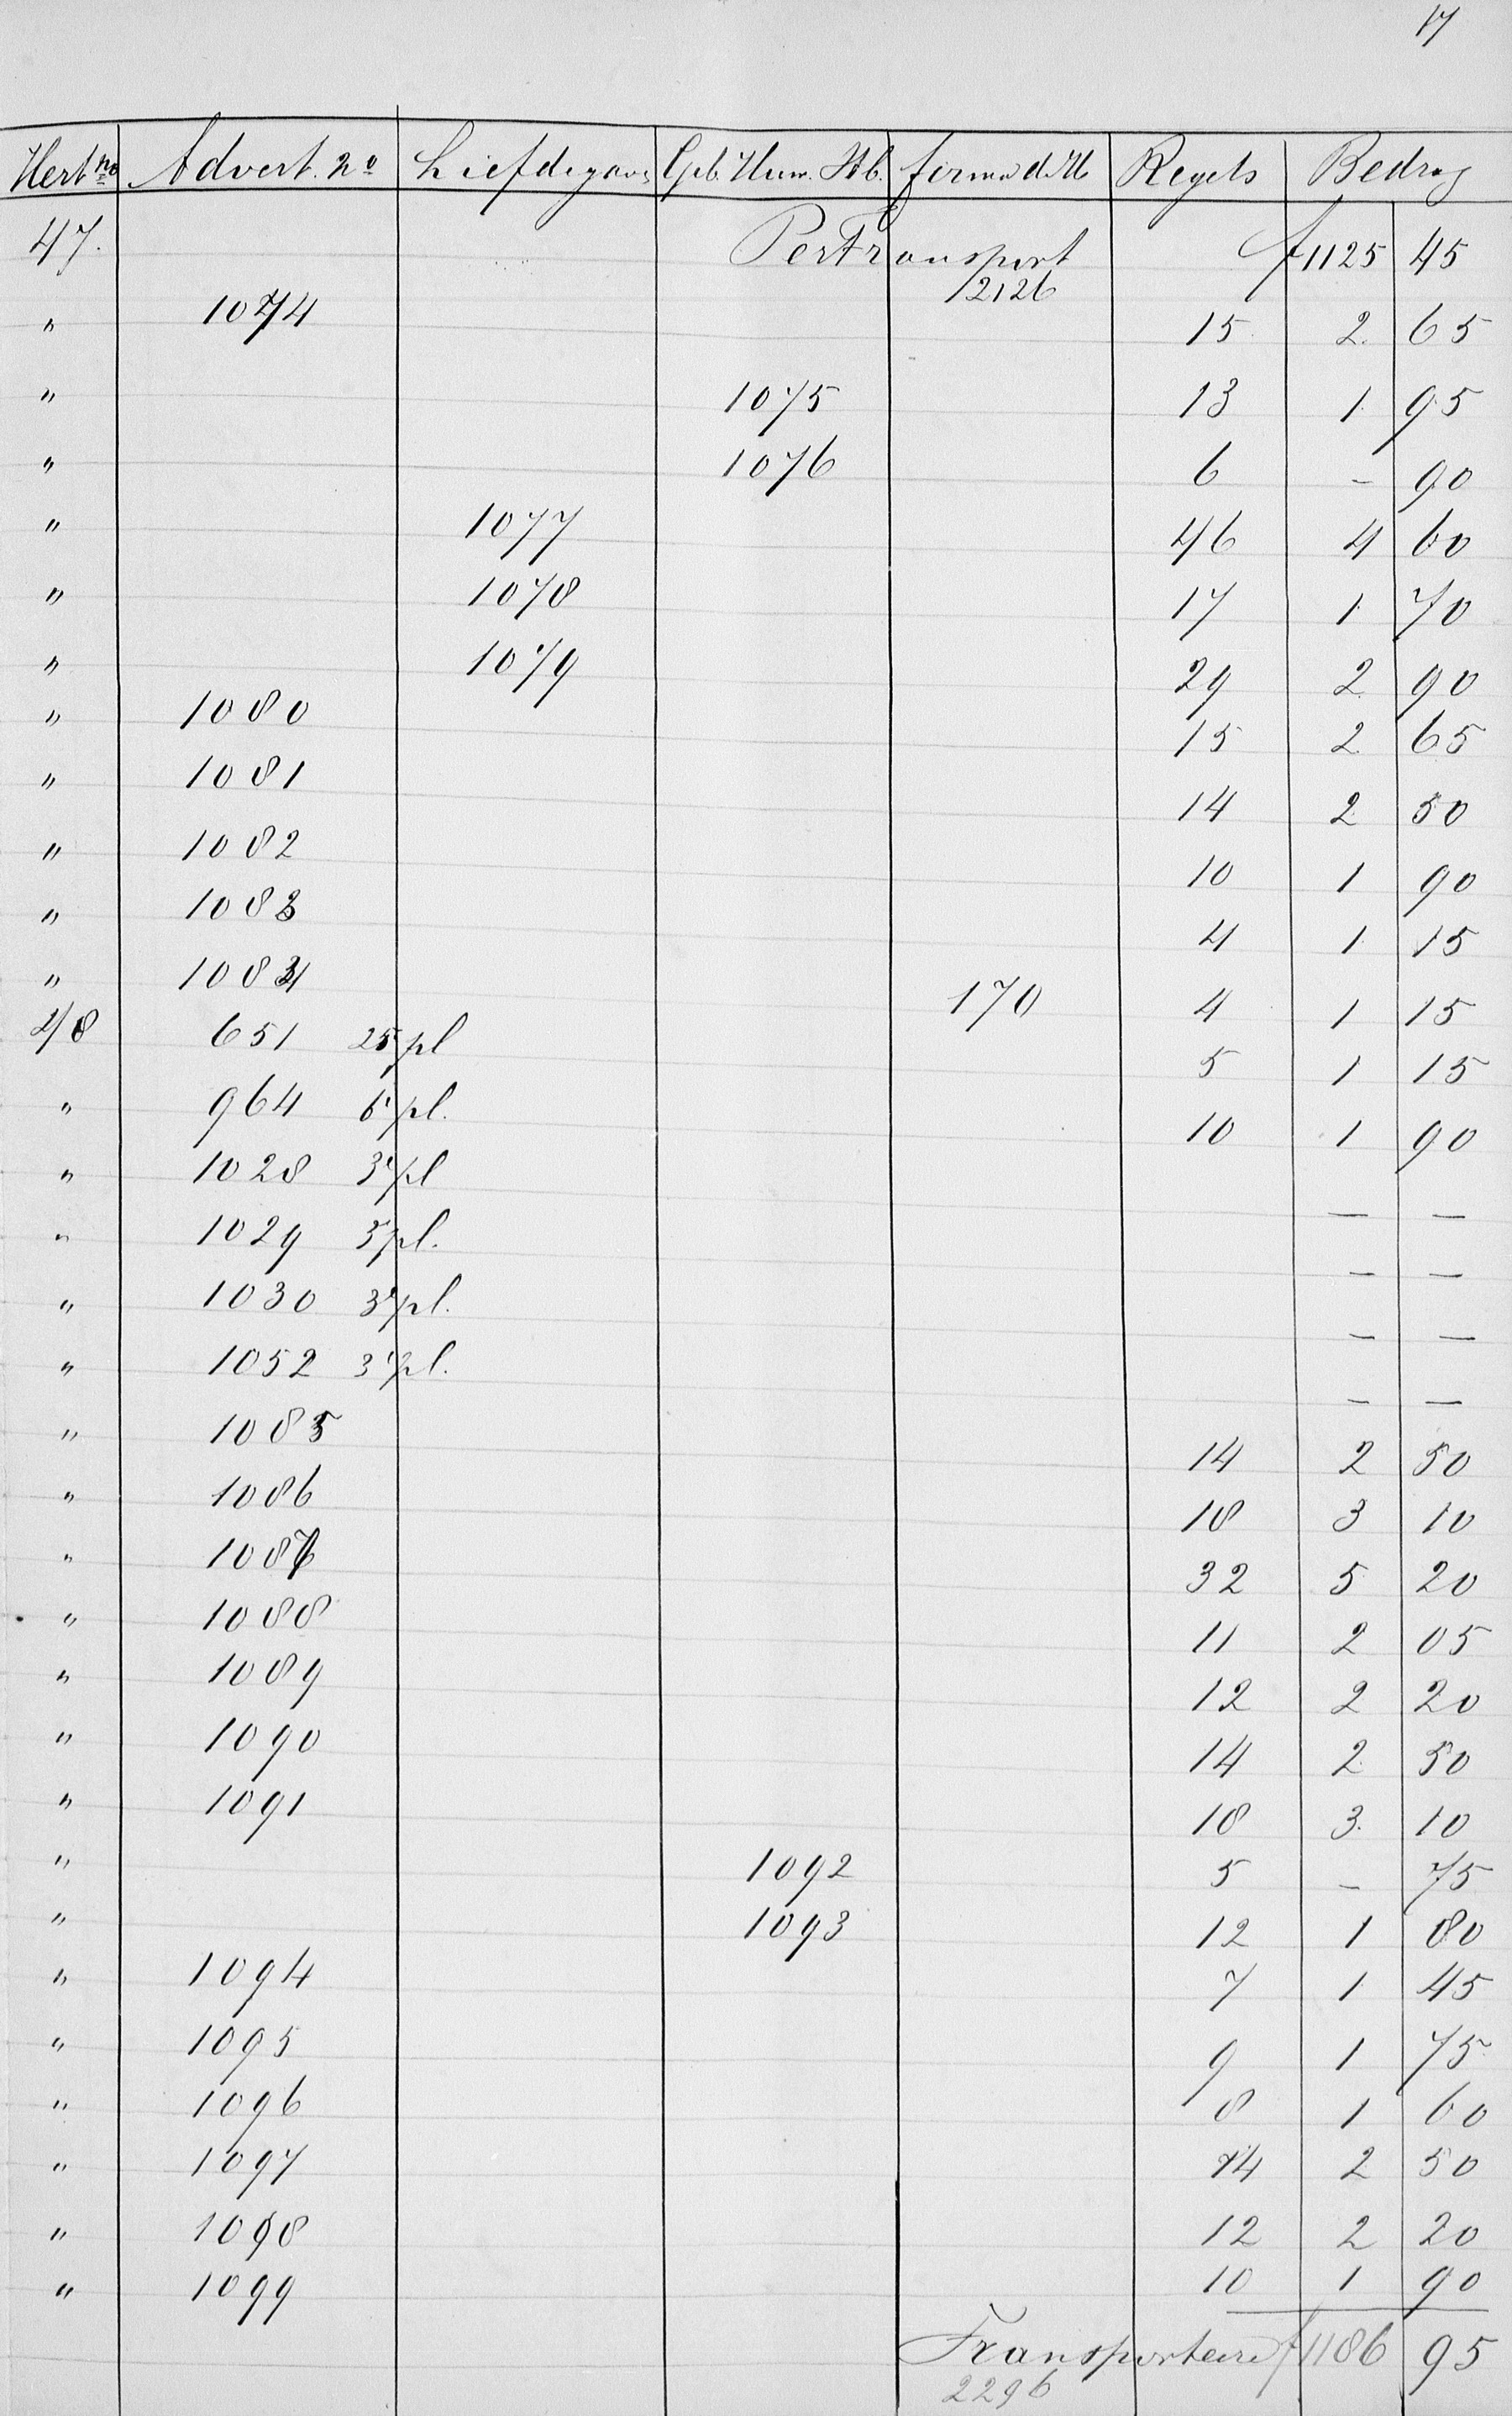 17
Hert no Advert. no Liefdegav. Geb. Huw. St b. firma d. M Regels Bedrag
47. Per Transport f 1125 45
2126
" 1074 15 2. 65
" 1075 13 1 95
" 1076 6 - 90
" 1077 46 4 60
" 1078 17 1 70
" 1079 29 2 90
" 1080 15 2 65
" 1081 14 2 50
" 1082 10 1 90
" 1083 4 1 15
" 1084 170 4 1 15
48 651 25 pl 5 1 15
" 964 6 pl. 10 1 90
" 1028 3 pl — —
" 1029 3 pl. — —
" 1030 3 pl. — —
" 1052 3 pl. — —
" 1085 14 2 50
" 1086 18 3 10
" 1087 32 5 20
" 1088 11 2 05
" 1089 12 2 20
" 1090 14 2 50
" 1091 18 3. 10
" 1092 5 - 75
" 1093 12 1 80
" 1094 7 1 45
" 1095 9 1 75
" 1096 8 1 60
" 1097 14 2 50
" 1098 12 2 20
" 1099 10 1 90
Transporteere f 1186 95
2296